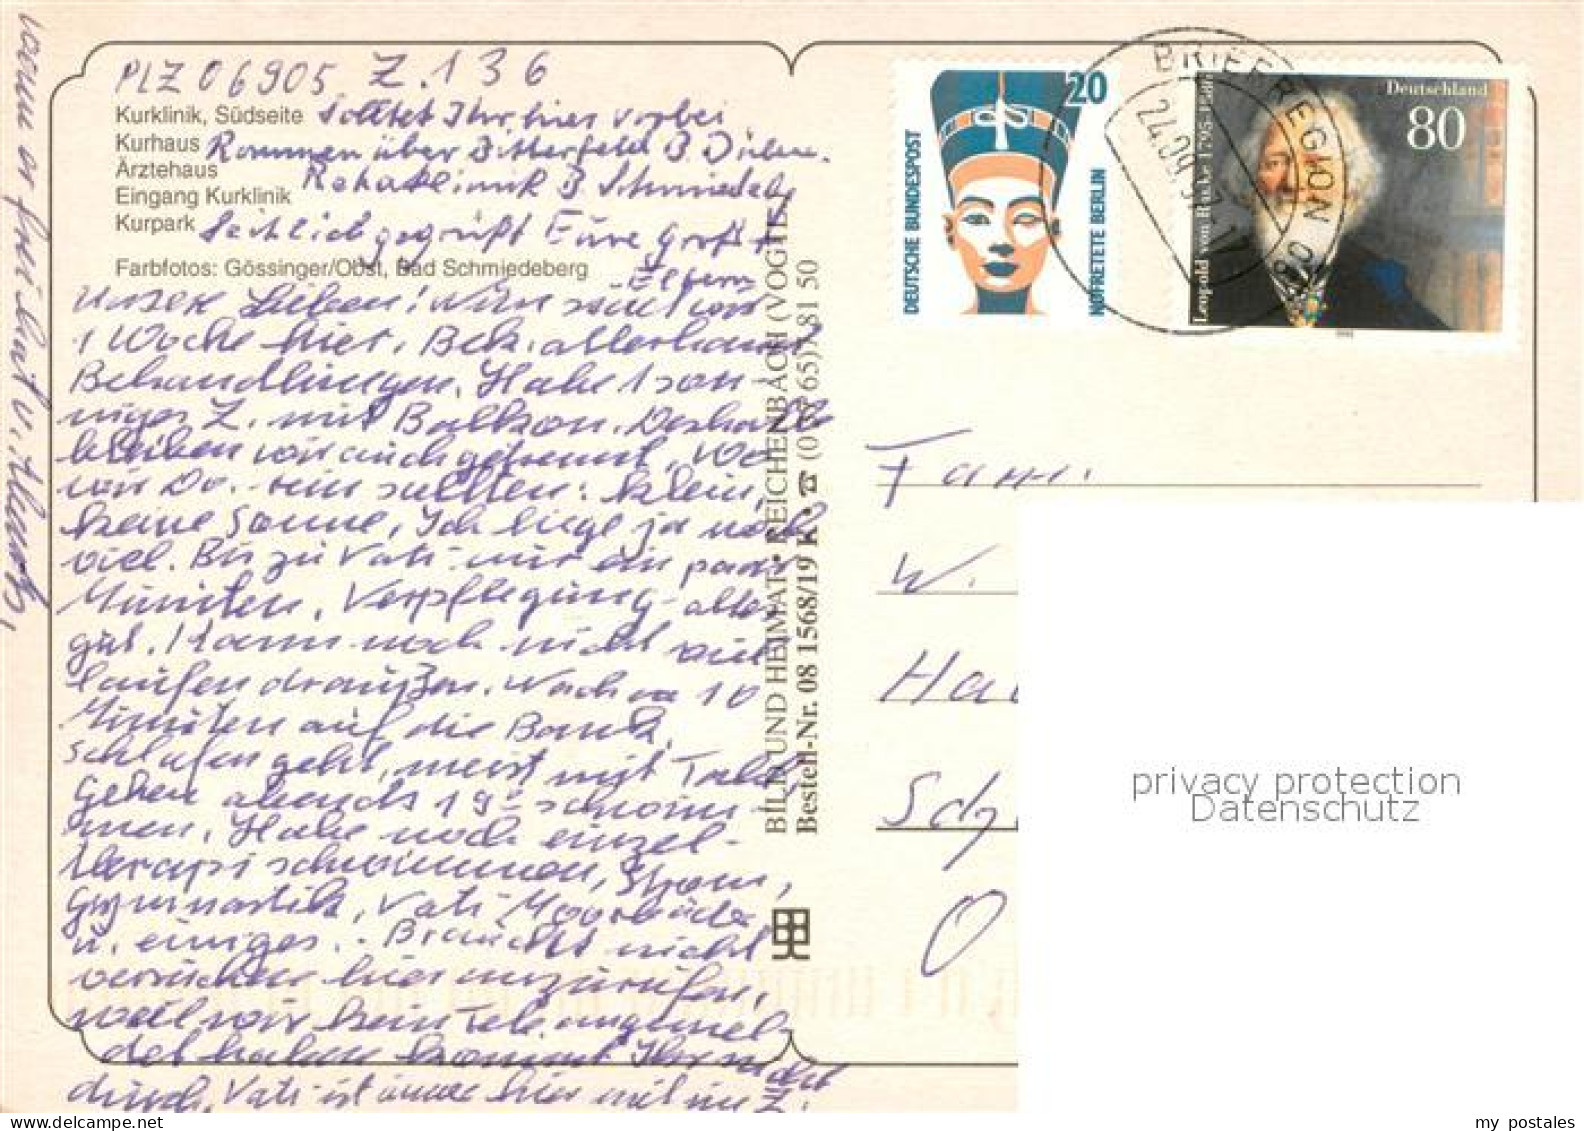 PLZ 06905 Z. 136
Kurklinik, Südseite
Kurhaus
Ärztehaus
Eingang Kurklinik
Kurpark
Farbfotos: Gössinger/Obst, Bad Schmiedeberg
Solltet Ihr hier vorbei
Kommen über Bitterfeld B. Düben.
Rehaklinik B Schmiedebg
Herzlich gegrüßt Eure Groß +
Eltern
Unsere Lieben! Nun sind wir
1 Woche hier, Bek. allerhand
Behandlungen. Habe 1 son-
niges Z. mit Balkon. Deshalb
bleiben wir auch getrennt. Wo
wir Do. rein sollten: klein,
keine Sonne, Ich liege ja noch
viel. Bis zu Vati nur ein paar
Minuten, Verpflegung - alles
gut. Kann noch nicht viel
laufen draußen. Nach ca 10
Minuten auf die Bank,
schlafen geht, meist mit Tabl,
Gehen abends 19 schwim-
men. Habe noch einzel-
therapi schwimmen, Strom,
Gymnastik, Vati Moorbäder
u. einiges. Braucht nicht
versuchen hier anzurufen,
weil wir kein Tele angemel-
det haben kommt Ihr nicht
durch, Vati ist immer hier mit im Z.
wenn er frei hat v.
BILD UND HEIMAT REICHENBACH (VOGTL)
Bestell-Nr. 08 1568/19 K
DEUTSCHE BUNDESPOST
20
NOFRETETE BERLIN
Deutschland
80
Leopold von Ranke 1795-1886
BRIEFREGION
24.09.9
Fam.
W.
Ha
Sch
O
privacy protection
Datenschutz
my postales